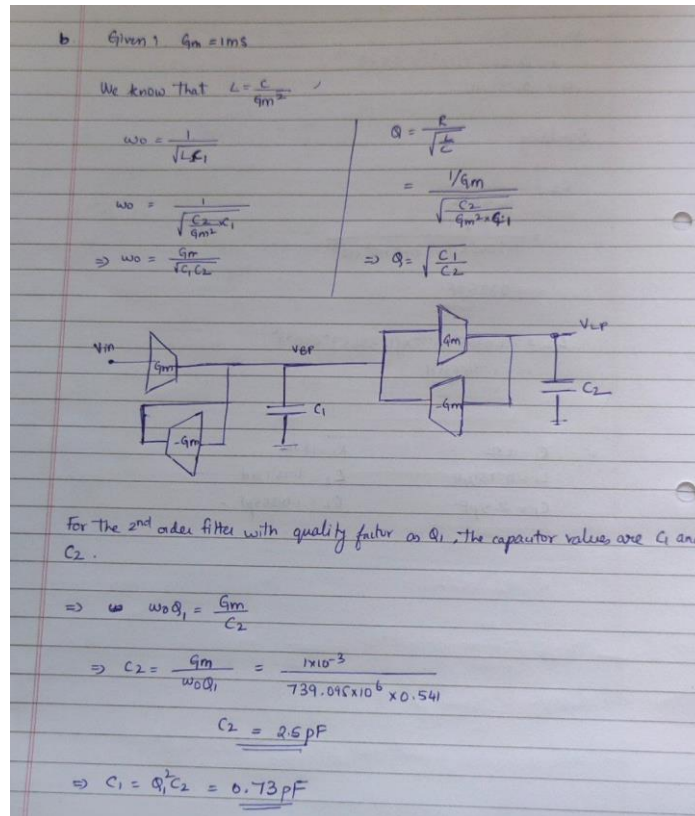 b Given: Gm = 1mS
We know that L = C/Gm²
ω0 = 1/√(LC1)
Q = R/√(L/C)
= (1/Gm)/√(C2/(Gm² × C1))
ω0 = 1/√((C2/Gm²) × C1)
⇒ ω0 = Gm/√(C1C2)
⇒ Q = √(C1/C2)
Vin
Gm
-Gm
VBP
C1
Gm
-Gm
VLP
C2
For the 2nd order filter with quality factor as Q1, the capacitor values are C1 an
C2.
⇒ ω0Q1 = Gm/C2
⇒ C2 = Gm/(ω0Q1) = (1×10⁻³)/(739.095×10⁶ × 0.541)
C2 = 2.5pF
⇒ C1 = Q1²C2 = 0.73pF